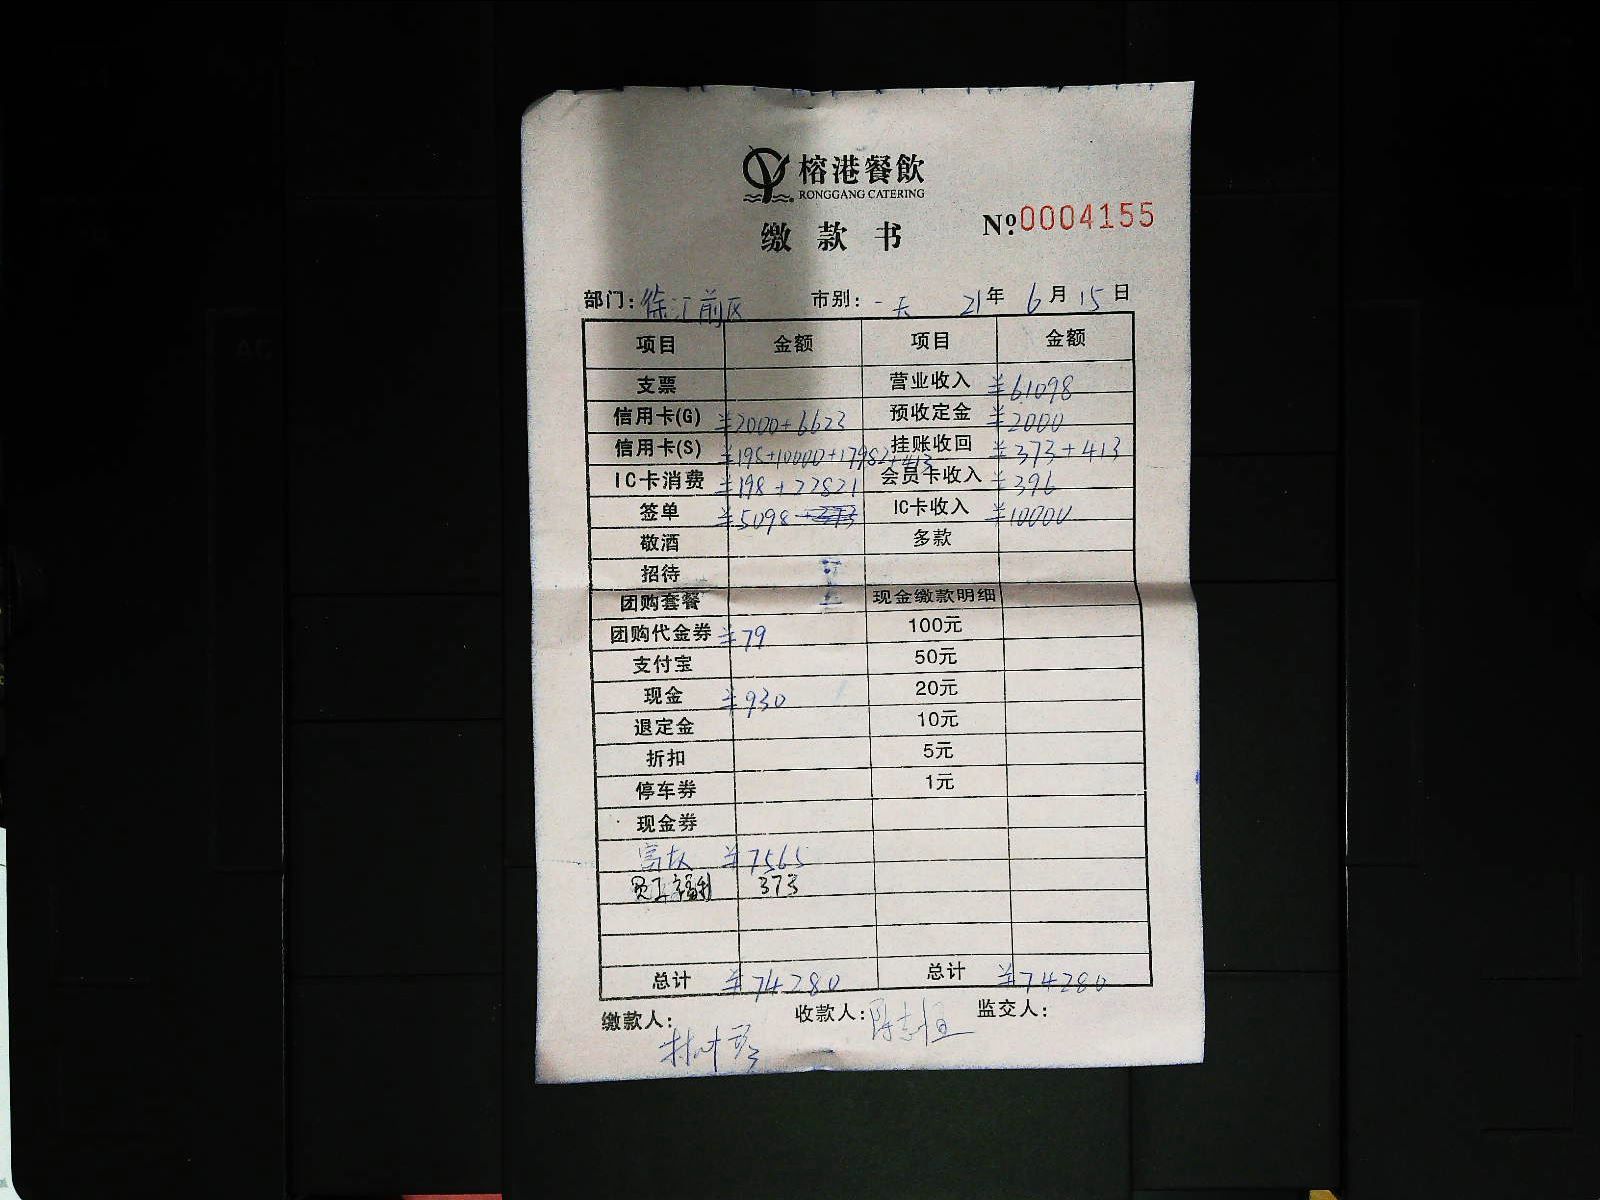 榕港餐飲
RONGGANG CATERING
缴款书 №0004155
部门: 前区 市别: 一天 21年 6月 15日
项目 金额 项目 金额
支票 营业收入 ¥61098
信用卡(G) ¥2000+6623 预收定金 ¥2000
信用卡(S) ¥198+10000+17982+413 挂账收回 ¥373+413
IC卡消费 ¥198+22821 会员卡收入 ¥396
签单 ¥5098 +373 IC卡收入 ¥10000
敬酒 多款
招待
团购套餐 现金缴款明细
团购代金券 ¥79 100元
支付宝 50元
现金 ¥930 20元
退定金 10元
折扣 5元
停车券 1元
现金券
¥7565
员工福利 373
总计 ¥74280 总计 ¥74280
缴款人: 收款人: 监交人: